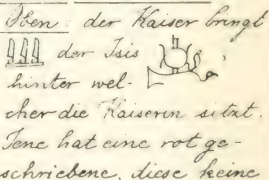 Oben: der Kaiser bringt
der Isis
hinter wel-
cher die Kaiserin sitzt.
Jene hat eine rot ge-
schriebene, diese keine